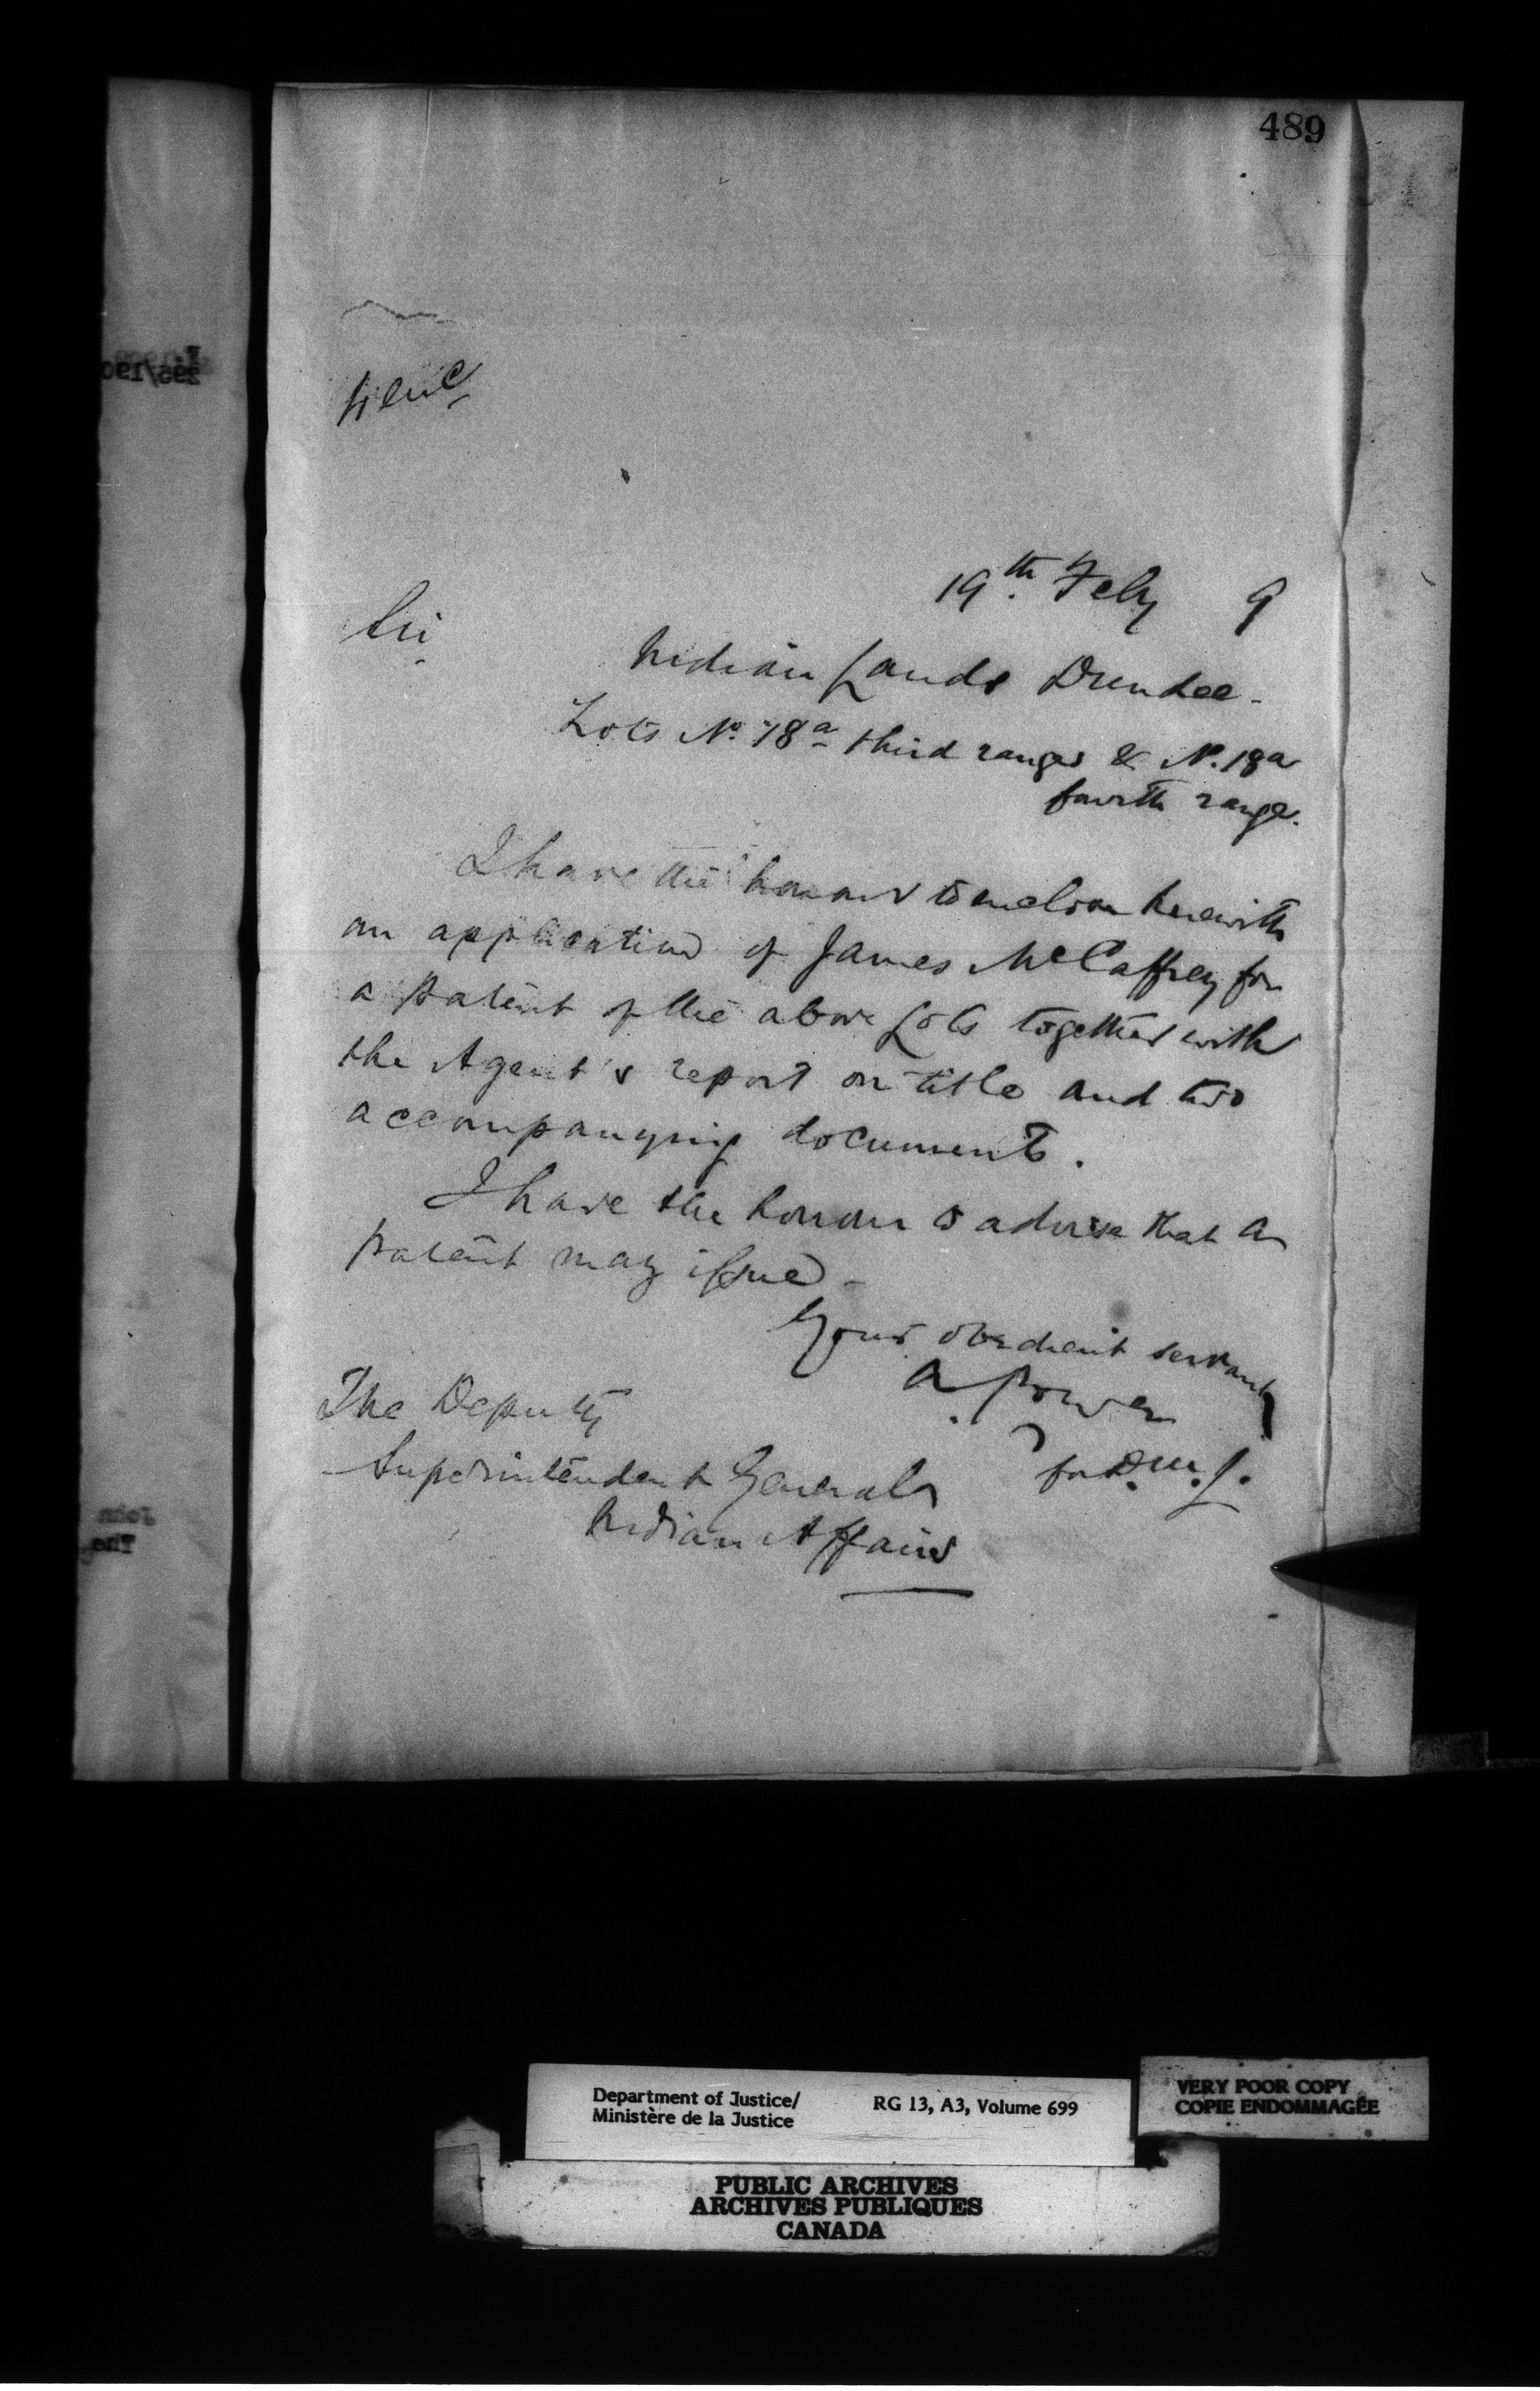 489
19th. Feby 9
Sir
Indian Lands Dundee -
Lots No. 18a third range & No. 18a
fourth range.
I have the honour to enclose herewith
an application of James McCaffrey for
a patent of the above Lots together with
the Agent's report on title and two
accompanying documents.
I have the honour to advise that a
patent may issue -
Your obedient servant
A. Power
for D.M.J.
The Deputy
Superintendent General
Indian Affairs
Department of Justice/
Ministère de la Justice
RG 13, A3, Volume 699
VERY POOR COPY
COPIE ENDOMMAGÉE
PUBLIC ARCHIVES
ARCHIVES PUBLIQUES
CANADA